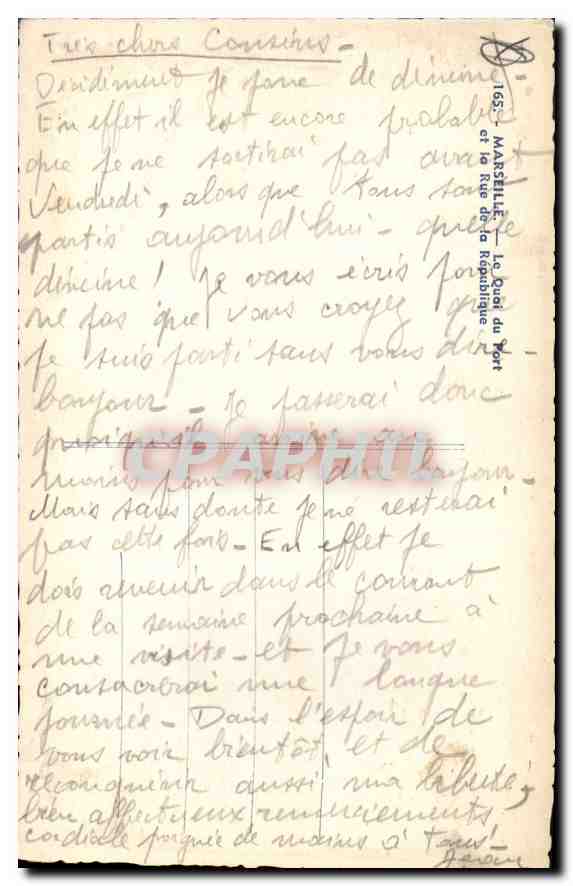 Très chers Cousins -
Décidément je joue de déveine
En effet il est encore probable
que je ne sortirai pas avant
Vendredi, alors que tous sont
partis aujourd'hui - quelle
déveine ! Je vous écris pour
ne pas que vous croyez que
je suis parti sans vous dire -
bonjour - Je passerai donc
au
moins pour vous dire bonjour -
Mais sans doute je ne resterai
pas cette fois - En effet je
dois revenir dans le courant
de la semaine prochaine à
une visite - et je vous
consacrerai une longue
journée - Dans l'espoir de
vous voir bientôt, et de
reconquérir aussi ma liberté,
bien affectueux remerciements
cordiale poignée de mains à tous -
Jean
165. - MARSEILLE. - Le Quai du Port
et la Rue de la République
CPAPHIL